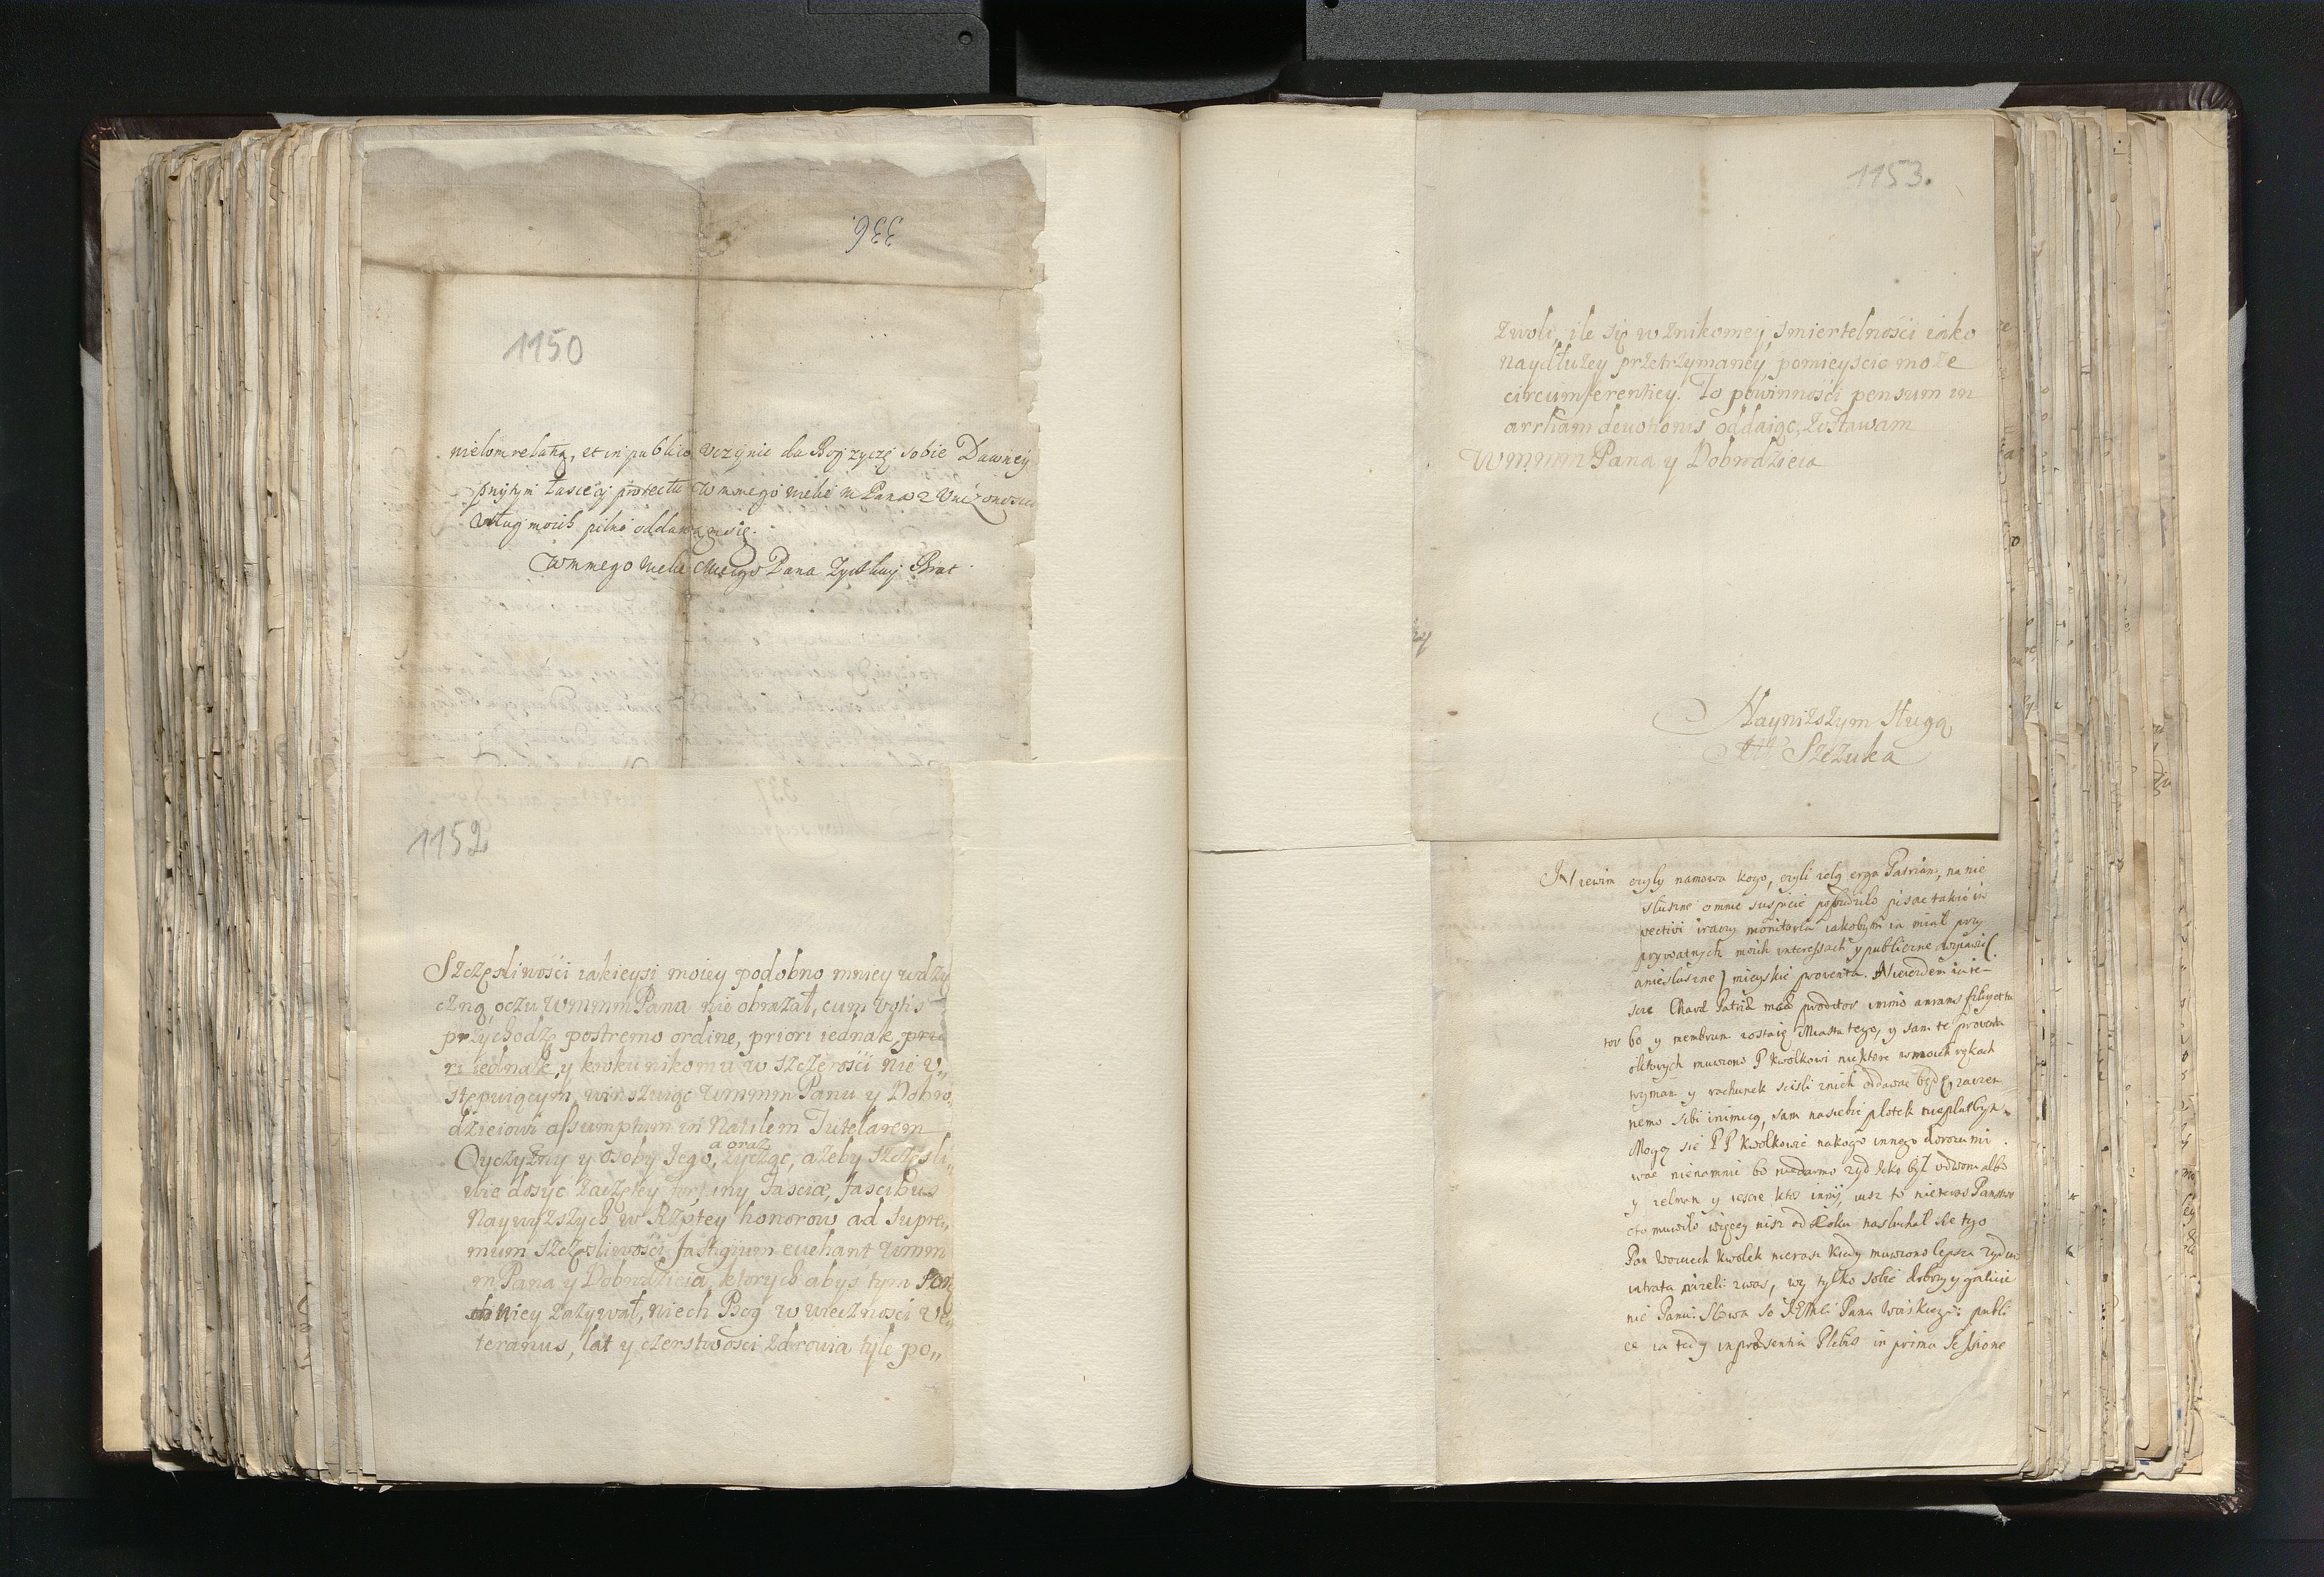 336.
1150
nielom relatią, et in publico uczynic da Bog zyczę sobie Dawney
przytym łasce y protectii Wmmego Mcie m Pana z Unizonoscią
Usług moich pilno oddawam się.
Wmmego Mcie Mcigo Pana Zyczliwy Brat
337
1152
Szczęsliwości iakieysi moiey podobno mniey wdzię
czną oczu WmmmPana nie obrazał, cum votis
przychodzę postremo ordine, priori iednak, prio
ri iednak y kroku nikomu w szczerości nie u„
stępuiącym, winszuiąc WmmmPanu y Dobro„
dzieiowi assumptum in Natilem Tutelarem
a oraz
Oyczyzny y osoby Jego, zycząc, azeby szczęsli„
wie dosyć zaczętey fortuny fasciæ, fascibus
Naywyzszych w Rzptey honorow ad supre„
mum szczęsliwości fastigium evehant Wmm
m Pana y Dobrodzieia, ktorych abyś tym
niey zazywał, niech Bog w wieczności ve„
teranus, lat y czerstwości zdrowia tyle po„
1153.
zwoli, ile się w znikomey smiertelności iako
naydłuzey przetrzymaney pomieyscic moze
circumferentiey. To powinności pensum in
arrham devotionis oddaiąc, zostawam
Wmmm Pana y Dobrodzieia
Nayniższym sługą
Szczuka
Niewim czyly namowa kogo, czyli zelo erga Patriam, na nie
słuszne omnie suspicie pobudziło pisac takie in
vectivi iraczy monitoria iakobym ia miał przy
prywatnych moich interessach y publiczne
aniesłuszne mieyskie proventa. Niewidem ia ie-
szcze Charæ Patriæ meæ proditor immo amans
tor bo y membrum zostaię Miasta tego, y sam te proventa
oktorych muwiono P Kwolkowi niektore w moich rękach
trzymam y rachunek scisli znich oddawac będę, zaczem
nemo sibi inimicus, sam nasiebie plotek nieplutbym
Mogą się PP Kwolkowie nakogo innego dorozumi
wac nienamnie bo niedarmo zyd tylko był udwom albo
y zelman y iescze ktos inny, wsz to nieteras Panstwo
cto muwiło więcey nisz od Roku nasłuchał sie tego
Pan Woyciech Kwolek nieraz kiedy muwiono lepsza zydow
intrata nizeli zwas, wy tylko sobie dobrzy y
nic Panu. Słowa so JEMści Pana Woiskiego: publi
ce ia tedy in præsentia Plebis in prima Sessione